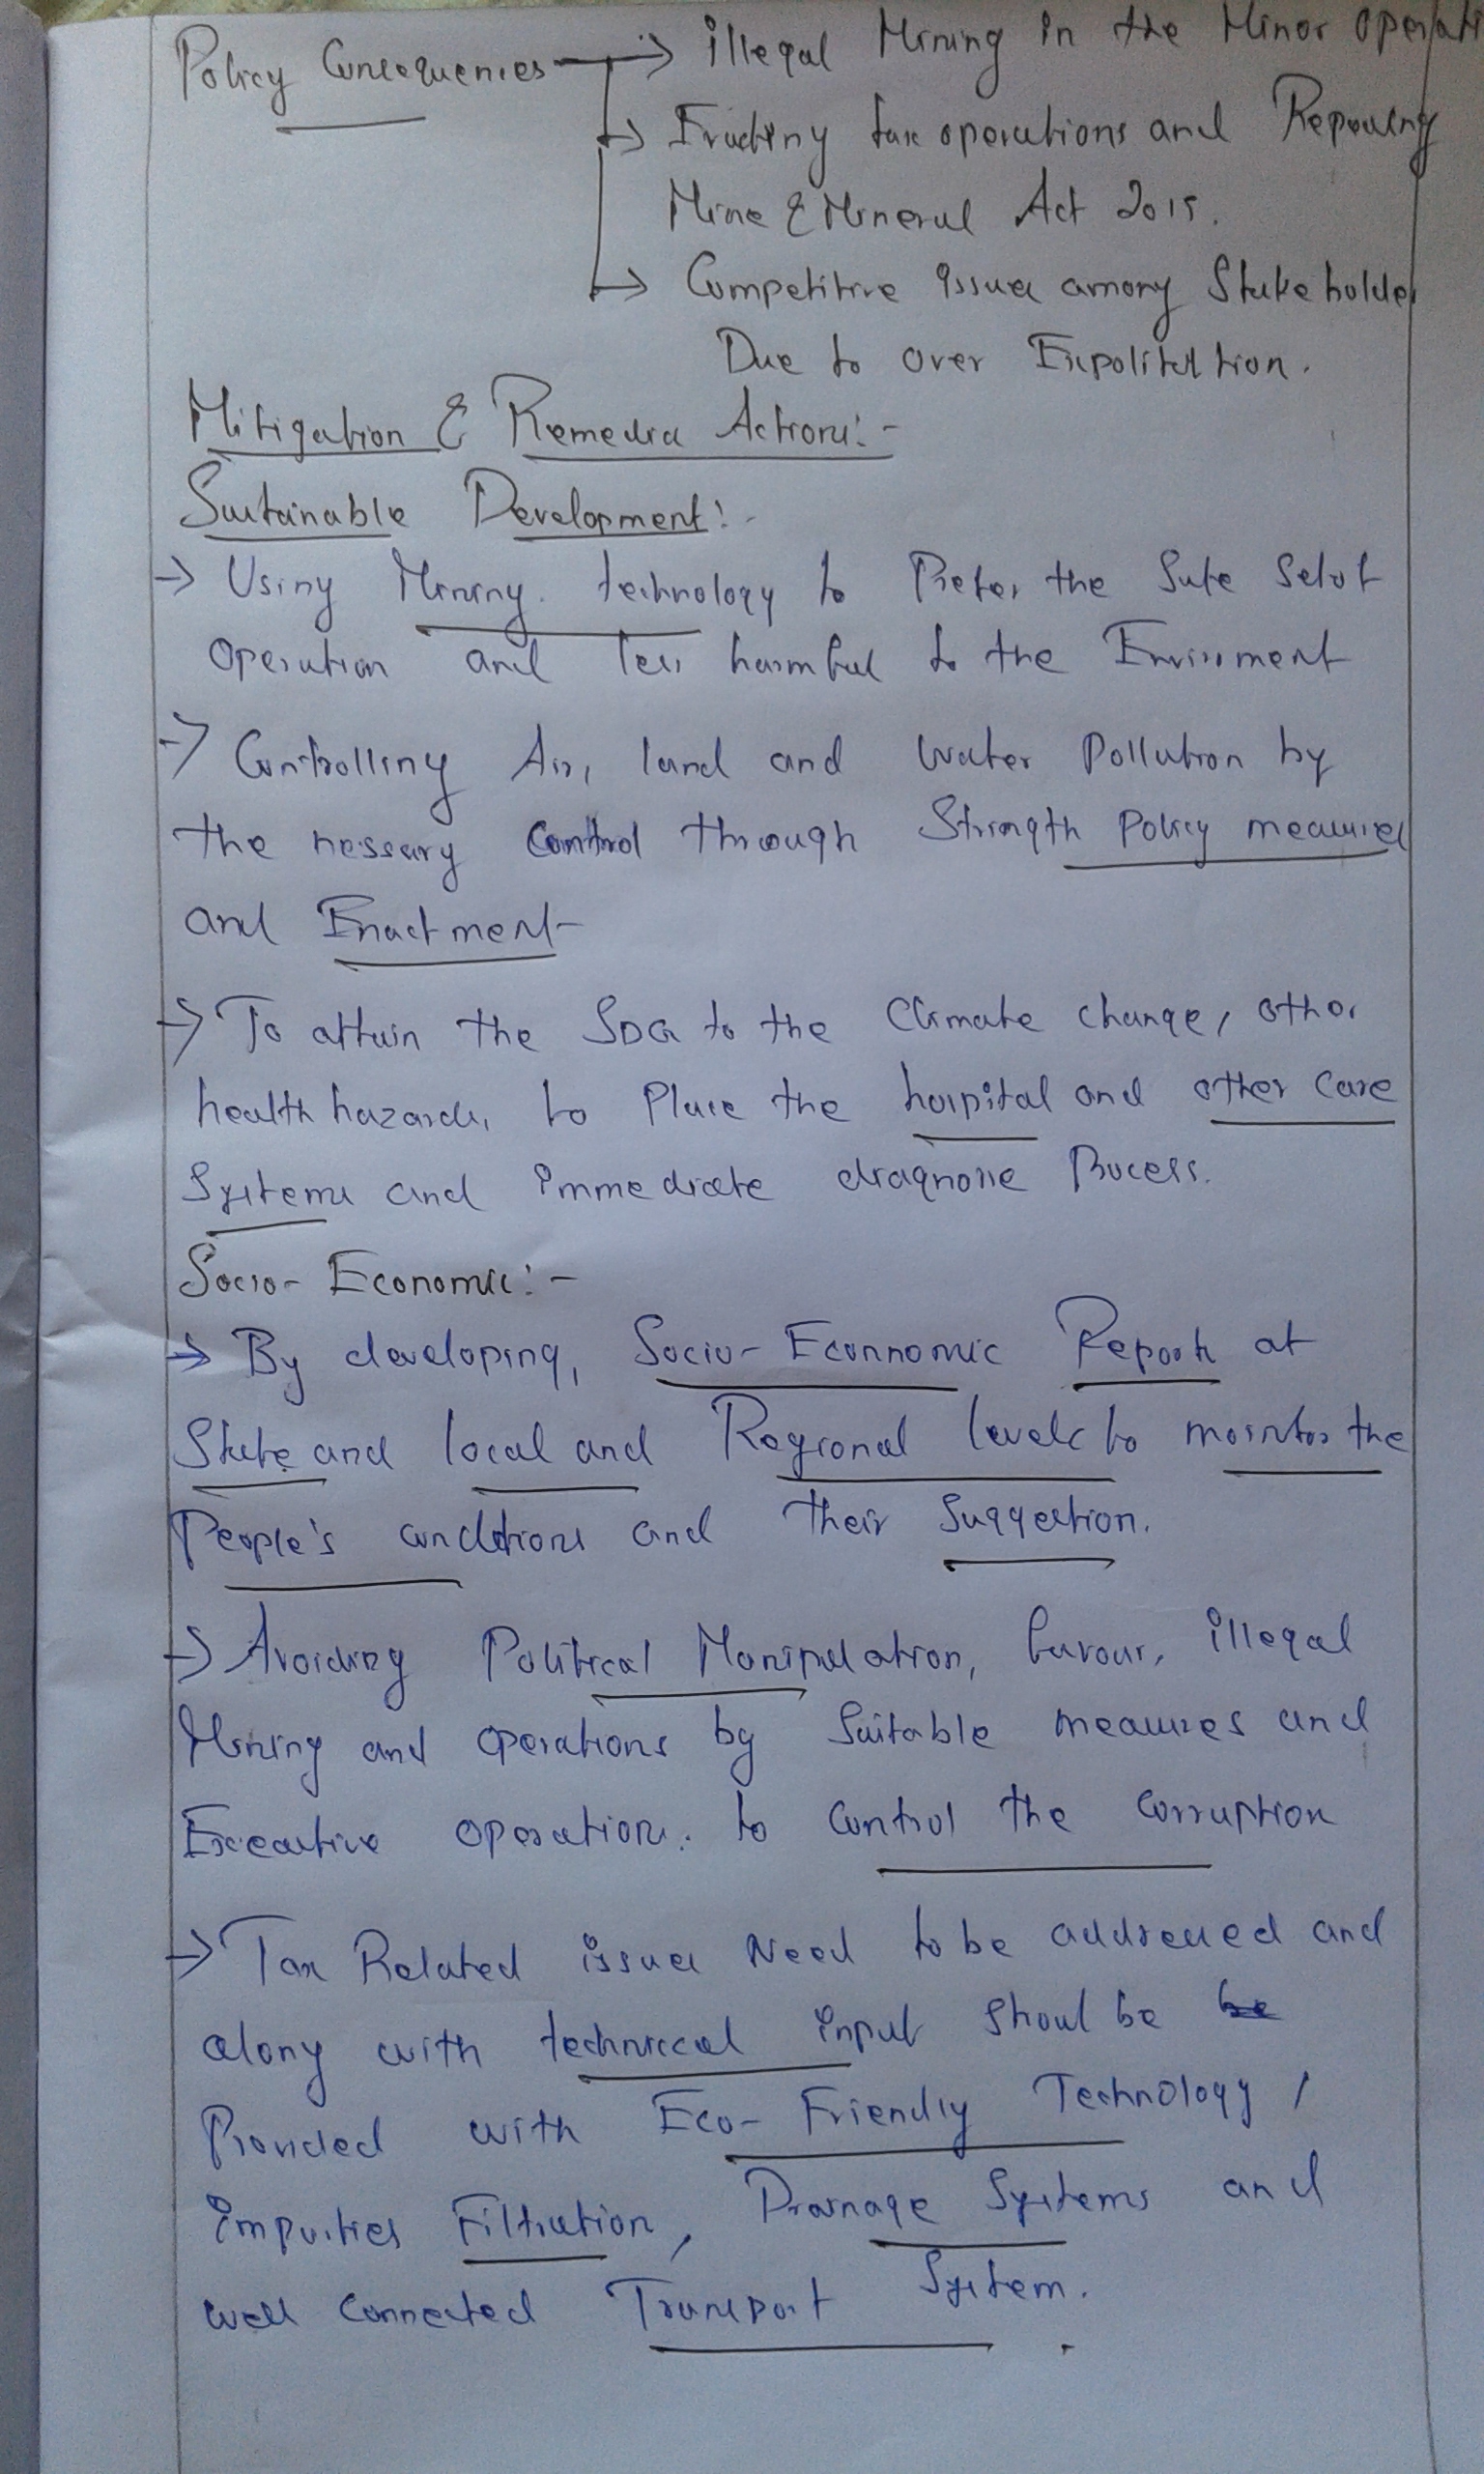 Policy Consequences → illegal Mining in the Minor Operati
→ Evading tax operations and Repealing
Mine & Mineral Act 2015.
→ Competitive issues among Stakeholder
Due to over Expolitation.
Mitigation & Remedia Actions:-
Sustainable Development:-
→ Using Mining technology to Prefer the Safe
Operation and less harmful to the Enviroment
→ Controlling Air, land and Water Pollution by
the nessary Control through Strength Policy measures
and Enactment
→ To attain the SDG to the Climate change, other
health hazards, to Place the hospital and other Care
Systems and immediate diagnosie Process.
Socio-Economic:-
→ By developing, Socio-Econnomic Reports at
State and local and Regional levels to monitor the
People's conditions and their Suggestion.
→ Avoiding Political Manipulation, favour, illegal
Mining and operations by Suitable measures and
Executive operations. to control the corruption
→ Tax Related issues Need to be addressed and
along with technical input shoul be
Provided with Eco-Friendly Technology,
impurities Filtration, Drainage Systems and
well Connected Transport System.